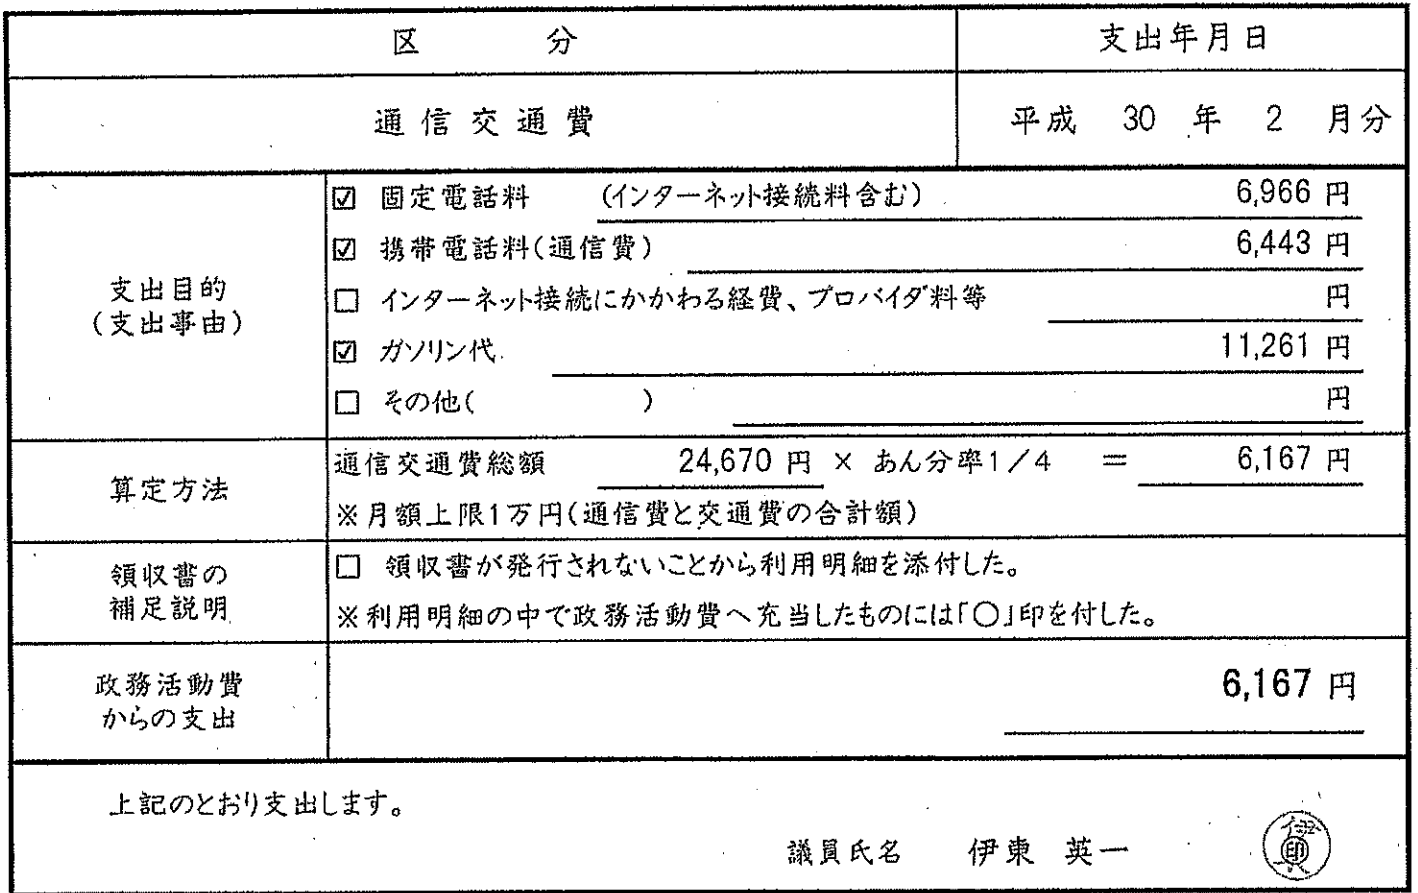 区 分 支出年月日
通信交通費 平成 30 年 2 月分
支出目的
(支出事由)
☑ 固定電話料 (インターネット接続料含む) 6,966 円
☑ 携帯電話料(通信費) 6,443 円
□ インターネット接続にかかわる経費、プロバイダ料等 円
☑ ガソリン代 11,261 円
□ その他( ) 円
算定方法
通信交通費総額 24,670 円 × あん分率1/4 = 6,167 円
※月額上限1万円(通信費と交通費の合計額)
領収書の
補足説明
□ 領収書が発行されないことから利用明細を添付した。
※利用明細の中で政務活動費へ充当したものには「○」印を付した。
政務活動費
からの支出
6,167 円
上記のとおり支出します。
議員氏名 伊東 英一 印